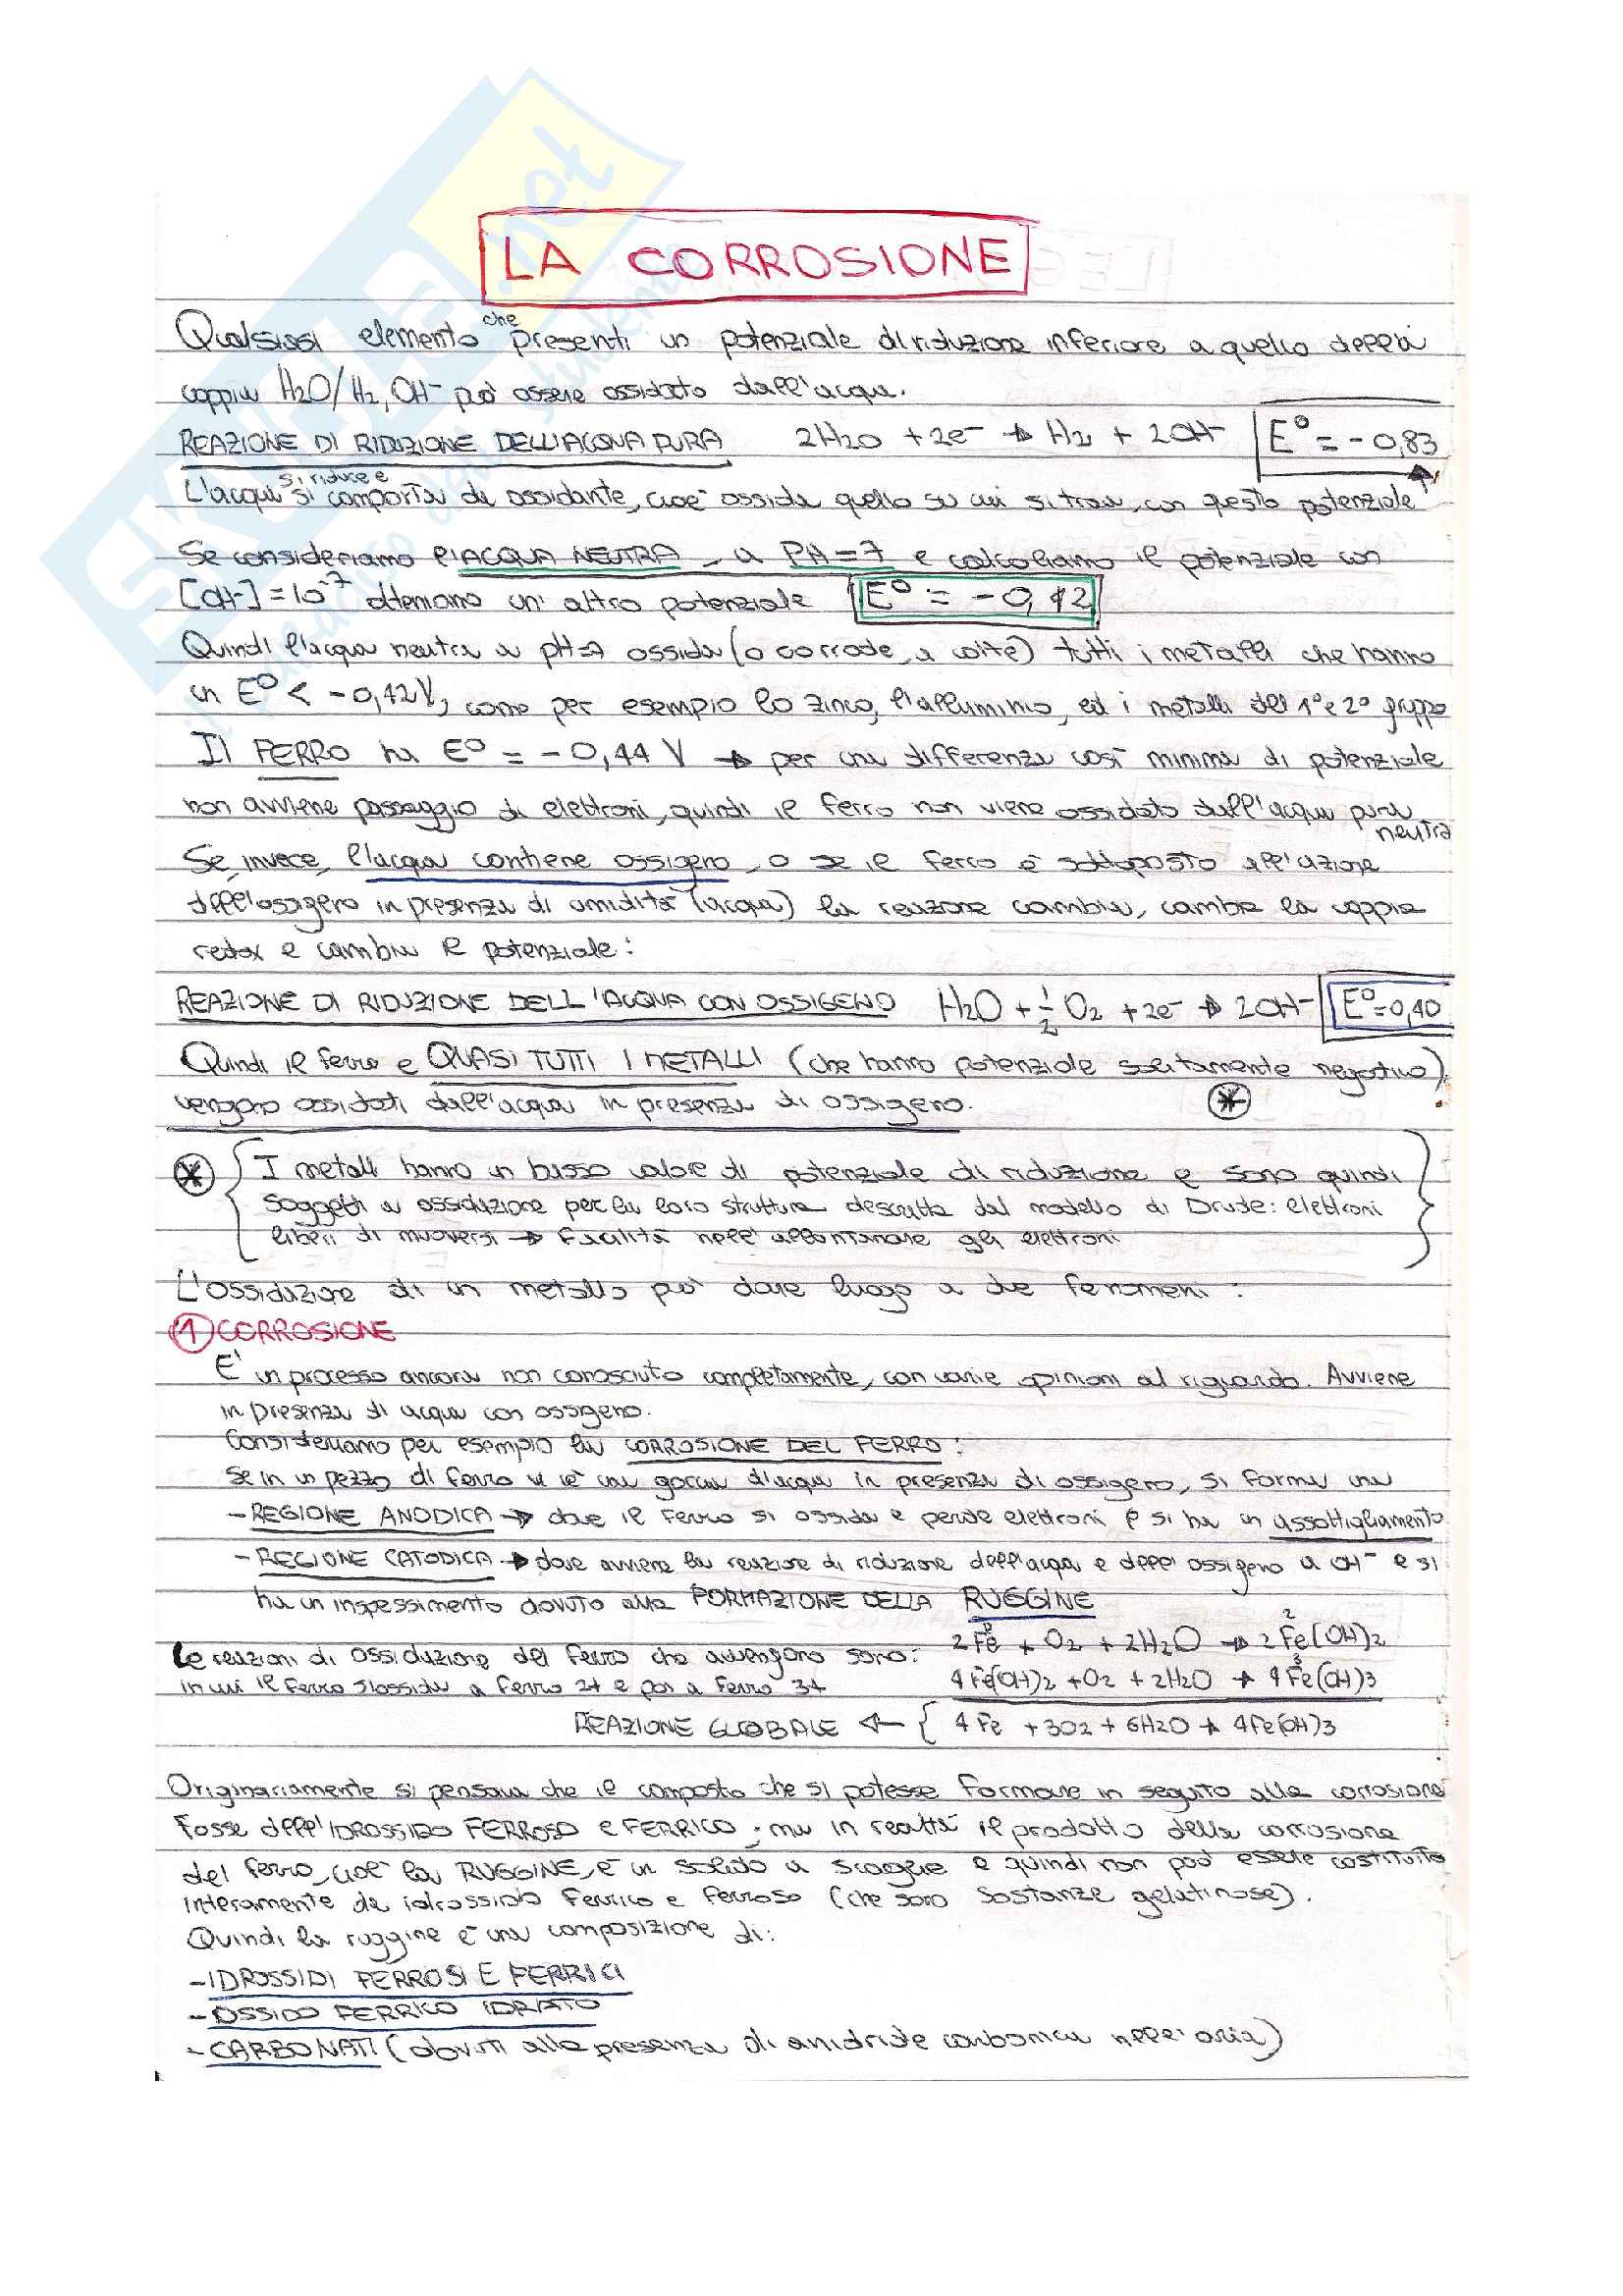 LA CORROSIONE
Qualsiasi elemento che presenti un potenziale di riduzione inferiore a quello della
coppia H2O/H2,OH- può essere ossidato dall'acqua.
REAZIONE DI RIDUZIONE DELL'ACQUA PURA 2H2O + 2e- → H2 + 2OH- E° = -0,83
L'acqua si riduce e si comporta da ossidante, cioè ossida quello su cui si trova, con questo potenziale
Se consideriamo l'ACQUA NEUTRA, a PH=7 e calcoliamo il potenziale con
[OH-] = 10^-7 otteniamo un' altro potenziale E° = -0,42
Quindi l'acqua neutra a pH=7 ossida (o corrode, a volte) tutti i metalli che hanno
un E° < -0,42V, come per esempio lo zinco, l'alluminio, ed i metalli del 1° e 2° gruppo
Il FERRO ha E° = -0,44 V → per una differenza così minima di potenziale
non avviene passaggio di elettroni, quindi il ferro non viene ossidato dall'acqua pura neutra
Se, invece, l'acqua contiene ossigeno, o se il ferro è sottoposto all'azione
dell'ossigeno in presenza di umidità (acqua) la reazione cambia, cambia la coppia
redox e cambia il potenziale:
REAZIONE DI RIDUZIONE DELL'ACQUA CON OSSIGENO H2O + 1/2 O2 + 2e- → 2OH- E°=0,40
Quindi il ferro e QUASI TUTTI I METALLI (che hanno potenziale solitamente negativo)
vengono ossidati dall'acqua in presenza di ossigeno. *
* { I metalli hanno un basso valore di potenziale di riduzione e sono quindi
soggetti a ossidazione per la loro struttura descritta dal modello di Drude: elettroni
liberi di muoversi → facilità nell'allontanare gli elettroni }
L'ossidazione di un metallo può dare luogo a due fenomeni:
1 CORROSIONE
E' un processo ancora non conosciuto completamente, con varie opinioni al riguardo. Avviene
in presenza di acqua con ossigeno.
Consideriamo per esempio la CORROSIONE DEL FERRO:
Se in un pezzo di ferro vi è una goccia d'acqua in presenza di ossigeno, si forma una
- REGIONE ANODICA → dove il ferro si ossida e perde elettroni e si ha un assottigliamento
- REGIONE CATODICA → dove avviene la reazione di riduzione dell'acqua e dell'ossigeno a OH- e si
ha un inspessimento dovuto alla FORMAZIONE DELLA RUGGINE
Le reazioni di ossidazione del ferro che avvengono sono: 2Fe + O2 + 2H2O → 2Fe(OH)2
in cui il ferro si ossida a ferro 2+ e poi a ferro 3+ 4Fe(OH)2 + O2 + 2H2O → 4Fe(OH)3
REAZIONE GLOBALE ← { 4Fe + 3O2 + 6H2O → 4Fe(OH)3
Originariamente si pensava che il composto che si potesse formare in seguito alla corrosione
fosse dell'IDROSSIDO FERROSO e FERRICO; ma in realtà il prodotto della corrosione
del ferro, cioè la RUGGINE, è un solido a scaglie e quindi non può essere costituito
interamente da idrossido ferrico e ferroso (che sono sostanze gelatinose).
Quindi la ruggine è una composizione di:
- IDROSSIDI FERROSI E FERRICI
- OSSIDO FERRICO IDRATO
- CARBONATI (dovuti alla presenza di anidride carbonica nell'aria)